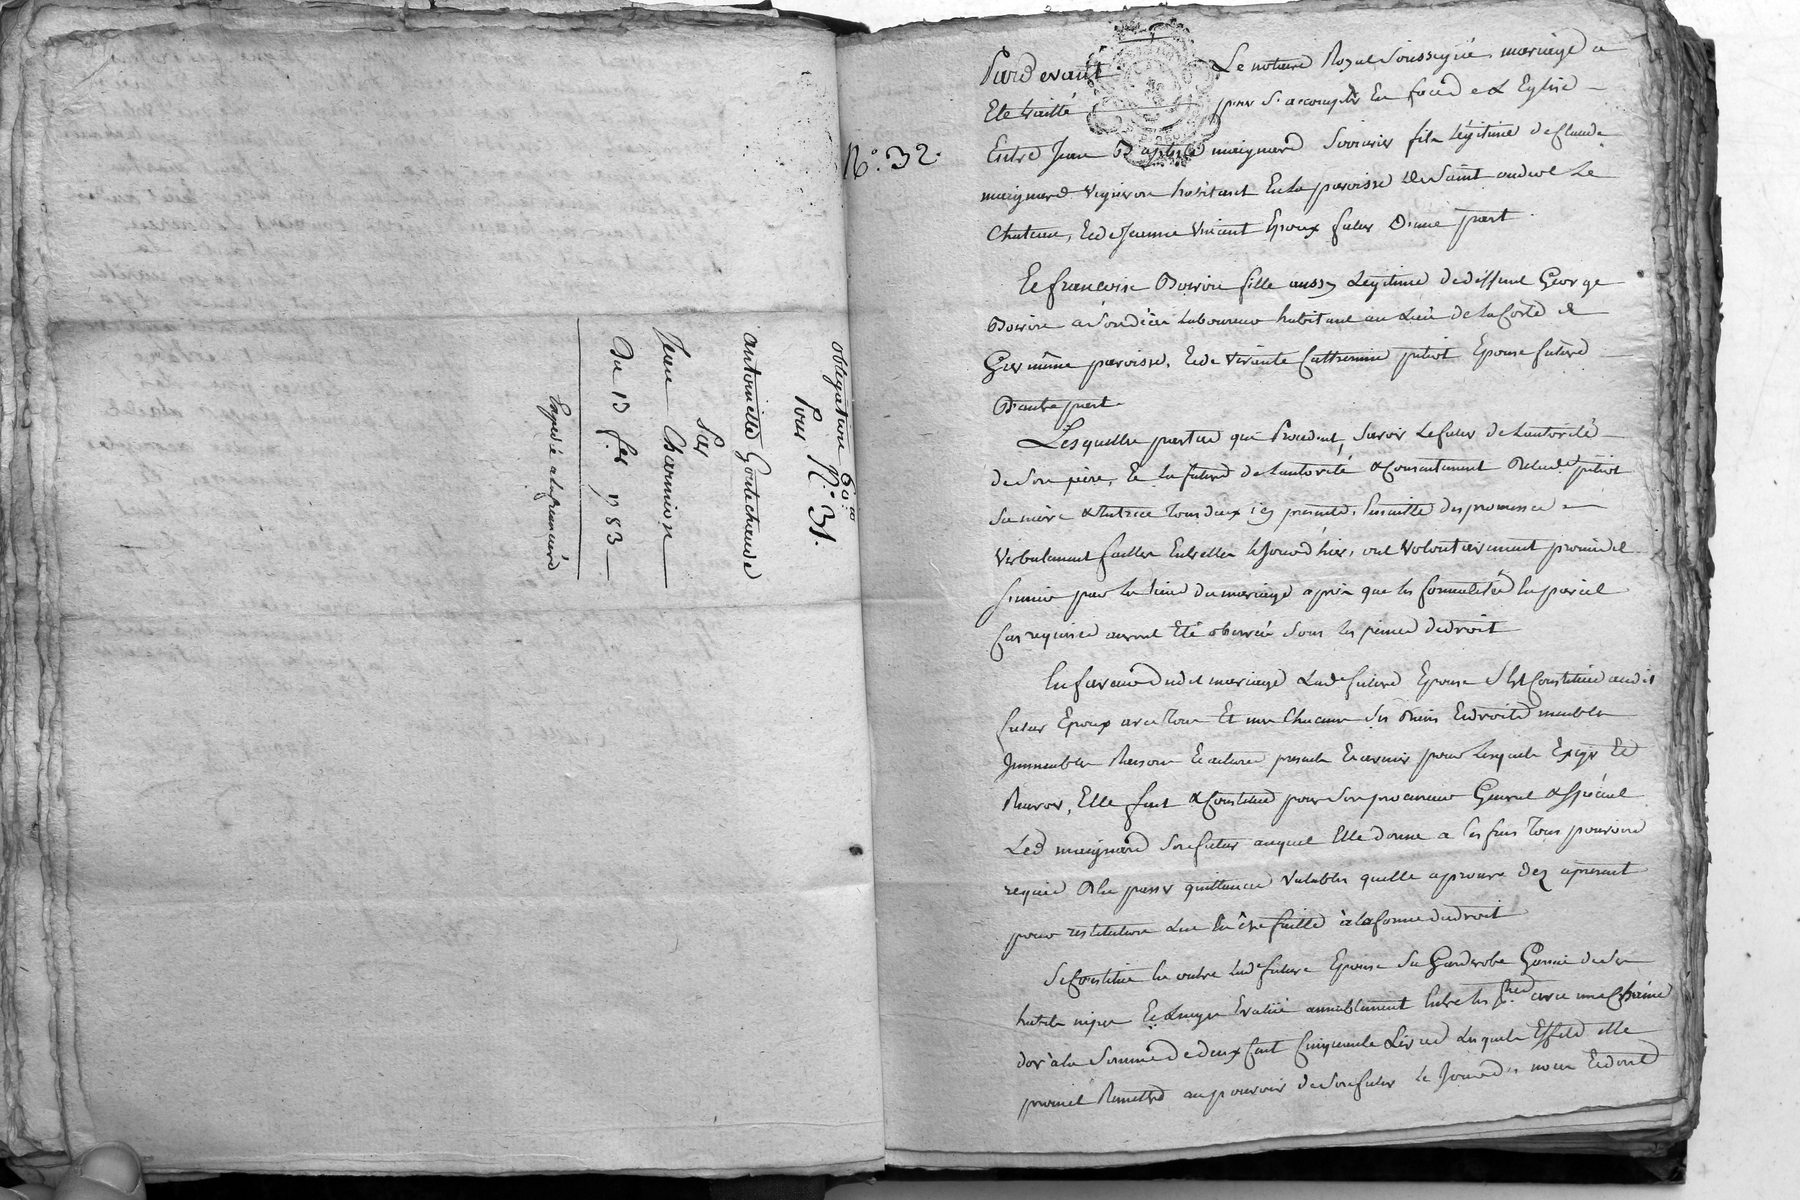 obligation 60.ll
Pour N.° 31.
antoinette Gontechaude
Sur
Jean Charnivon
Du 13 f.er 1783
Expediée a la creanciere
N.° 32.
Pardevant Le notaire Royal Soussigné, mariage a
Eté traitté pour S'accomplir En face de L'Eglise
Entre Jean Baptiste maignard fils légitime de Claude
maignard vigneron habitant En la paroisse De Saint andéol Le
Chateau, Et de Jeanne Vincent Epoux futur D'une part
Et francoise fille aussy Légitime de deffunt George
a Son decès Laboureur habitant au Lieu de La Coste
même paroisse, Et de Vivante Catherine Epouse future
D'autre part.
Lesquelles parties qui Procedent, Savoir Le futur de L'autorité
de Son père, Et La future de L'autorité & Consentement De lade
Sa mère & tutrice Tous deux icy presents, Ensuitte des promesses
Verbalement faittes Entrelles Le Jourd'hier, ont Volontairement promis de
S'unir par Le Lien du mariage après que les formalités En pareil
Cas requises auront Eté observées Sous les peines de droit
En faveur dudit mariage Lade future Epouse S'est Constituée audit
futur Epoux avec Tous Et un Chacun Ses Biens Et droits meubles
Immeubles Raisons Et actions presents Et avenir pour Lesquels Exiger Et
Recevoir, Elle fait & Constitue pour Son procureur General & Spécial
Led maignard Son futur auquel Elle donne a Ces fins Tous pouvoirs
requis De passer quittances Valables quelle approuve dez apresent
pour restitution Lui En être faitte à la forme du droit
Se Constitue En outre Lade future Epouse Sa Garderobe Garnie de Ses
habits nipes Et Linges Evalué amiablement Entre les ptes avec une Chaine
d'or à la Somme de deux Cent Cinquante Livres Lesquels Effets elle
promet Remettre au pouvoir de Son futur Le Jour des noces Et dont